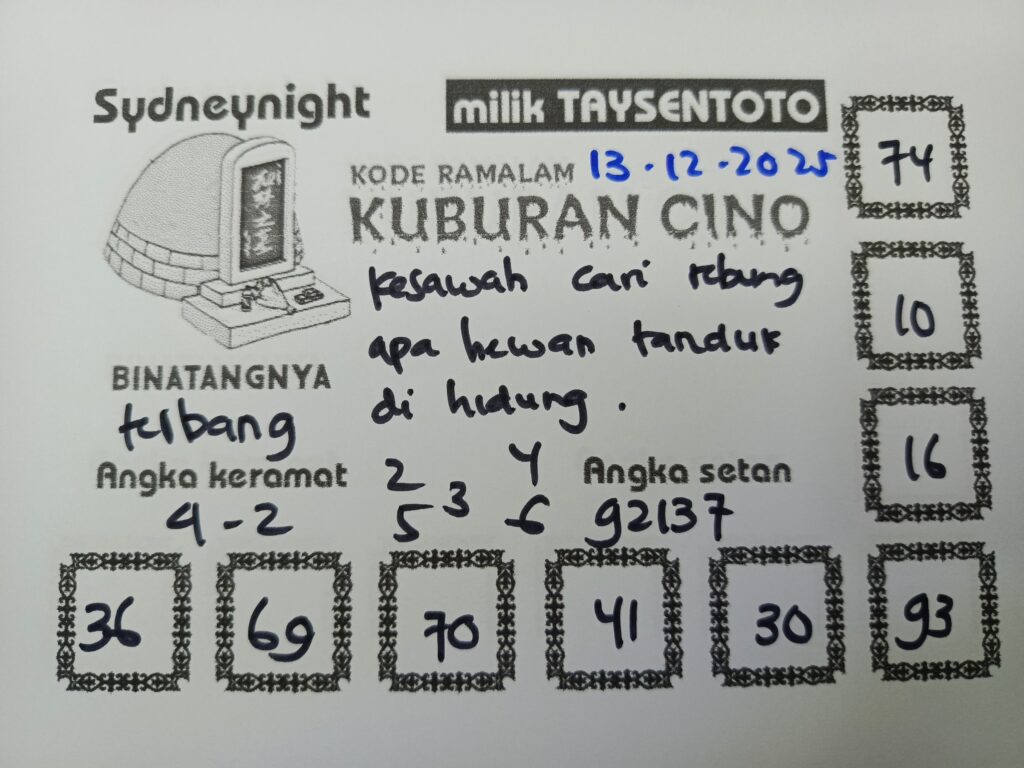 Sydneynight
milik TAYSENTOTO
KODE RAMALAM 13-12-2025
KUBURAN CINO
kesawah cari rebung
apa hewan tanduk
di hidung.
BINATANGNYA
terbang
Angka keramat
4-2
2 4
5 3 6
Angka setan
92137
74
10
16
36 69 70 41 30 93